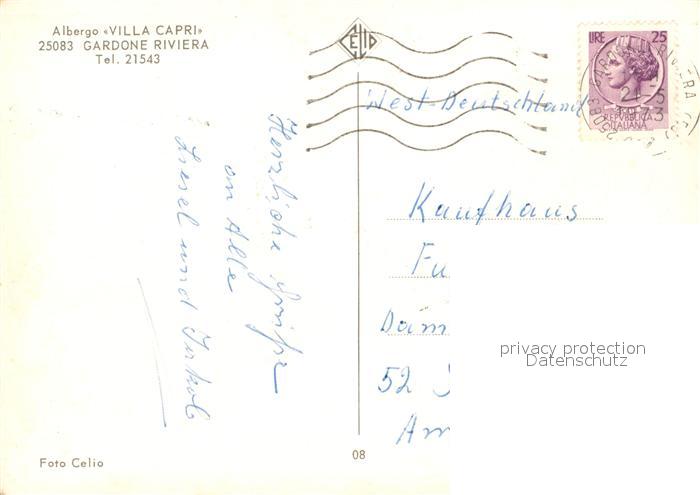 Albergo «VILLA CAPRI»
25083 GARDONE RIVIERA
Tel. 21543
CELIO
LIRE 25
REPVBBLICA
ITALIANA
West-Deutschland
Herzliche Grüße
an Alle
Liesel und
Kaufhaus
Fu
Dam
52
Am
privacy protection
Datenschutz
Foto Celio
08